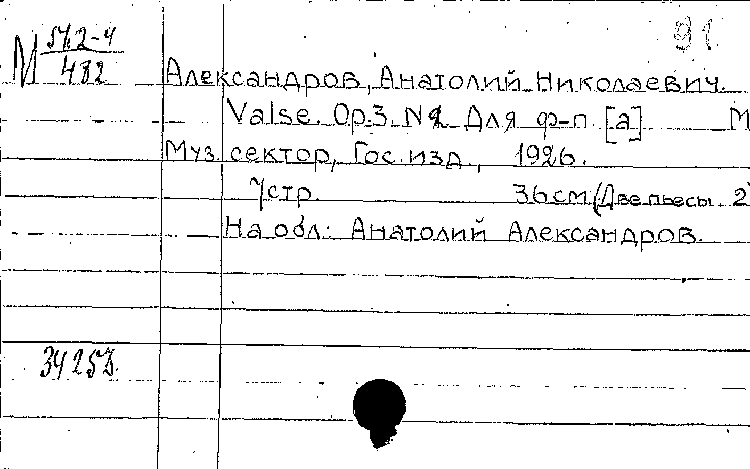 М 542-4
482
91
Александров, Анатолий Николаевич.
Valse. Op.3. №2 Для ф-п. [а] М
Муз. сектор, Гос. изд., 1926.
7 стр. 36 см (Две пьесы. 2
На обл.: Анатолий Александров.